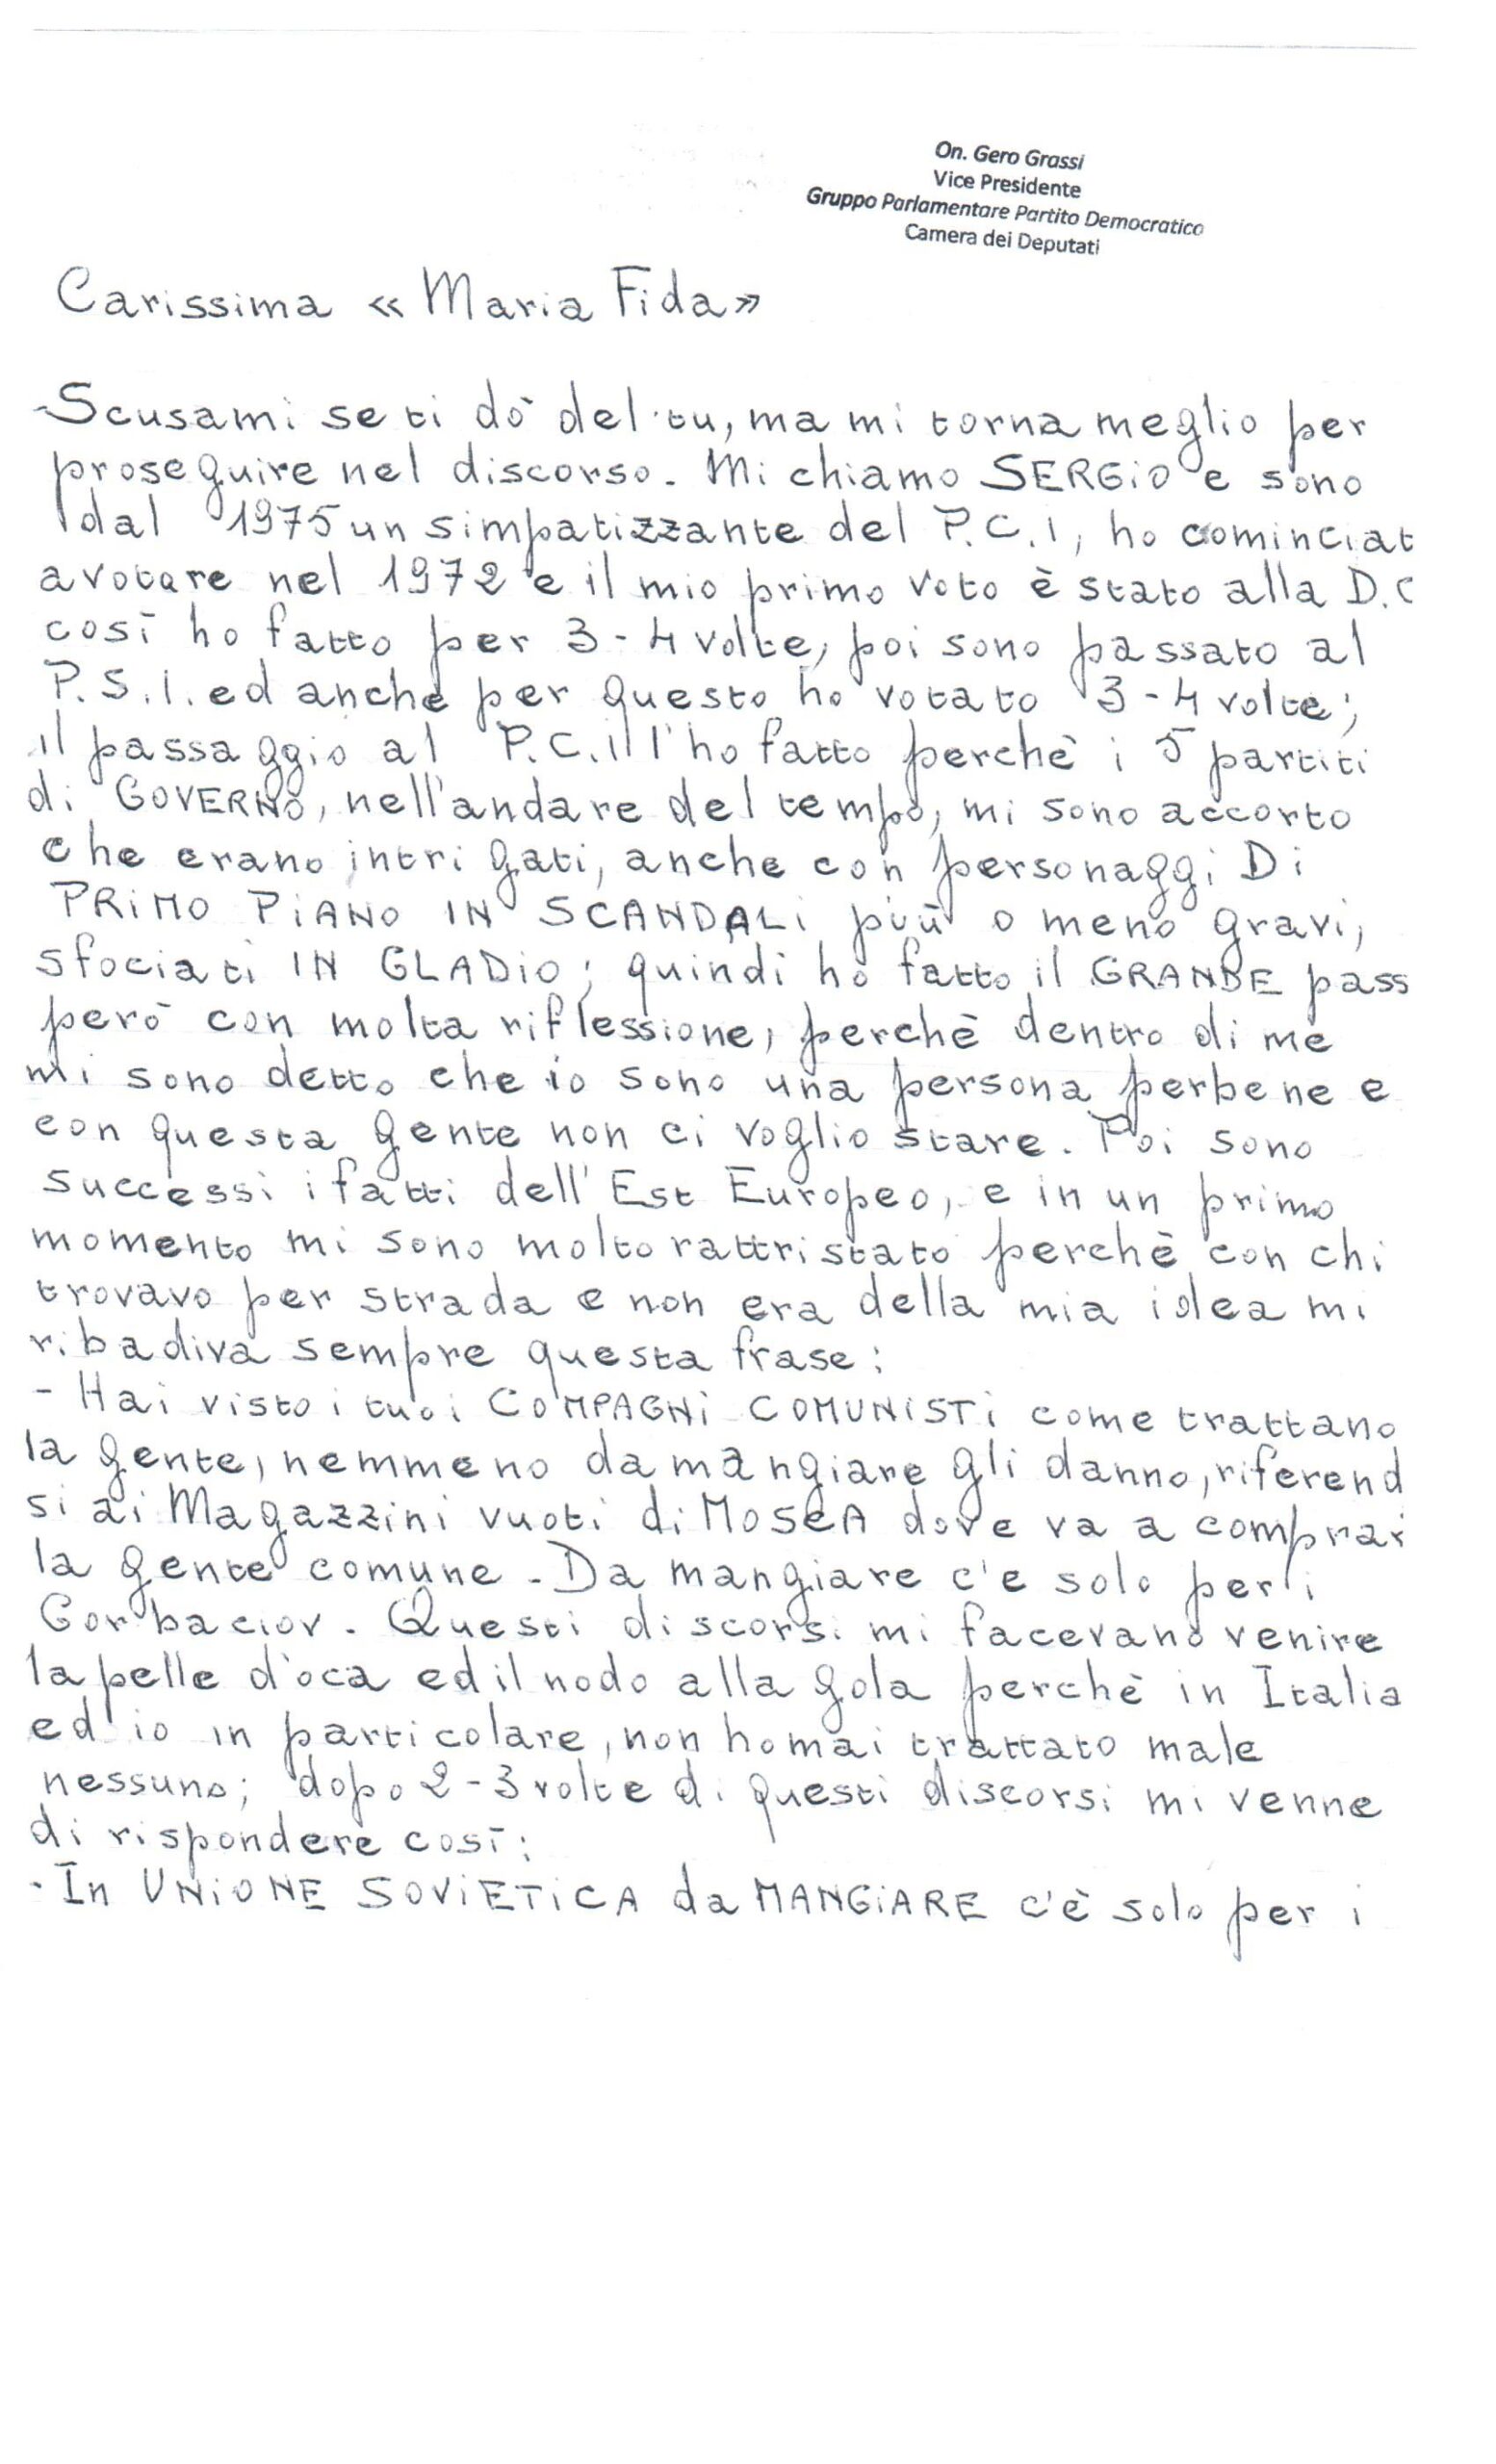 On. Gero Grassi
Vice Presidente
Gruppo Parlamentare Partito Democratico
Camera dei Deputati
Carissima « Maria Fida»
-Scusami se ti dò del tu, ma mi torna meglio per
proseguire nel discorso. Mi chiamo SERGiO e sono
dal 1975 un simpatizzante del P.C.I, ho cominciat
a votare nel 1972 e il mio primo voto è stato alla D.C
così ho fatto per 3-4 volte, poi sono passato al
P.S.I. ed anche per questo ho votato 3-4 volte;
il passaggio al P.C.I l'ho fatto perchè i 5 partiti
di GOVERNO, nell'andare del tempo, mi sono accorto
che erano intrigati, anche con personaggi Di
PRiMO PiANO IN SCANDALi più o meno gravi,
sfociati IN GLADiO; quindi ho fatto il GRANDE pass
però con molta riflessione, perchè dentro di me
mi sono detto che io sono una persona perbene e
con questa gente non ci voglio stare. Poi sono
successi i fatti dell'Est Europeo, e in un primo
momento mi sono molto rattristato perchè con chi
trovavo per strada e non era della mia idea mi
ribadiva sempre questa frase:
- Hai visto i tuoi COMPAGNi COMUNiSTi come trattano
la gente, nemmeno da mangiare gli danno, riferend
si ai Magazzini vuoti di MOSCA dove va a comprar
la gente comune - Da mangiare c'e solo per i
Gorbaciov. Questi discorsi mi facevano venire
la pelle d'oca ed il nodo alla gola perchè in Italia
ed io in particolare, non ho mai trattato male
nessuno; dopo 2-3 volte di questi discorsi mi venne
di rispondere così:
- In UNiONE SOViETiCA da MANGiARE c'è solo per i